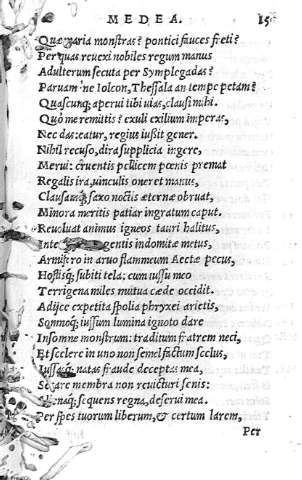 MEDEA. 15
Quæ maria monstras? pontici fauces freti?
Per quas reuexi nobiles regum manus
Adulterum secuta per Symplegadas?
Paruam ne Iolcon, Thessala an tempe petam?
Quascunq; aperui tibi uias, clausi mihi.
Quò me remittis? exuli exilium imperas,
Nec das: eatur, regius iussit gener.
Nihil recuso, dira supplicia ingere,
Merui: cruentis pellicem pœnis premat
Regalis ira, uinculis oneret manus,
Clausamq; saxo noctis æternæ obruat,
Minora meritis patiar ingratum caput.
Reuoluat animus igneos tauri halitus,
gentis indomitæ metus,
Armifero in aruo flammeum Aeetæ pecus,
Hostisq; subiti tela: cum iussu meo
Terrigena miles mutua cæde occidit.
Adijce expetita spolia phryxei arietis,
Somnoq; iussum lumina ignoto dare
Insomne monstrum: traditum fratrem neci,
Et scelere in uno non semel factum scelus,
Iussasq; natas fraude deceptas mea,
Secare membra non reuicturi senis:
sequens regna, deserui mea.
Per spes tuorum liberum, & certum larem,
Per